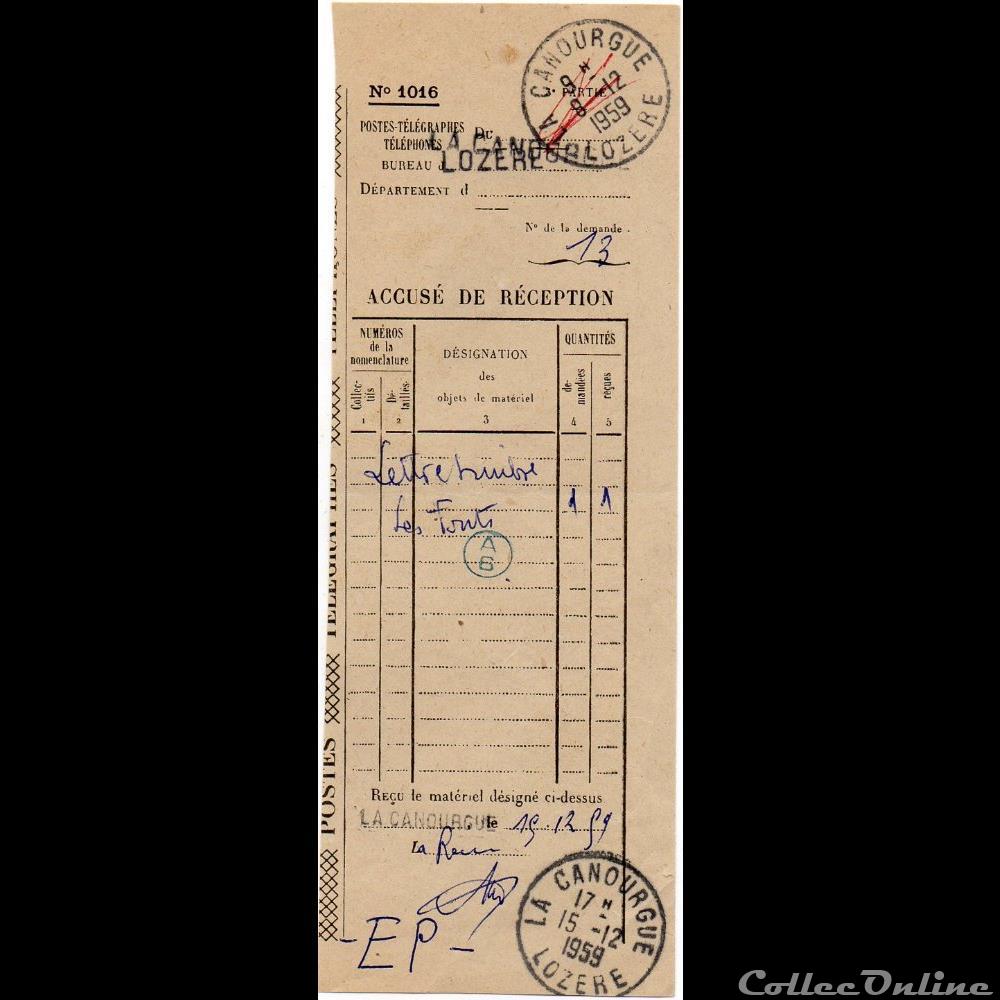 LA CANOURGUE
9 H
8 -12
1959
LOZERE
3e PARTIE
No 1016
POSTES-TÉLÉGRAPHES
TÉLÉPHONES
Du
LA CANOURGUE
LOZERE
BUREAU d
DÉPARTEMENT d
No de la demande.
13
ACCUSÉ DE RÉCEPTION
NUMÉROS
de la
nomenclature
DÉSIGNATION
des
objets de matériel
QUANTITÉS
Collec-
tifs
Dé-
taillés
de-
mandées
reçues
1 2 3 4 5
Lettre timbre
1 1
Les Fonts
A
6
POSTES TÉLÉGRAPHES
REÇU le matériel désigné ci-dessus
LA CANOURGUE, le 15.12 59
La
- EP -
LA CANOURGUE
17 H
15 -12
1959
LOZERE
CollecOnline